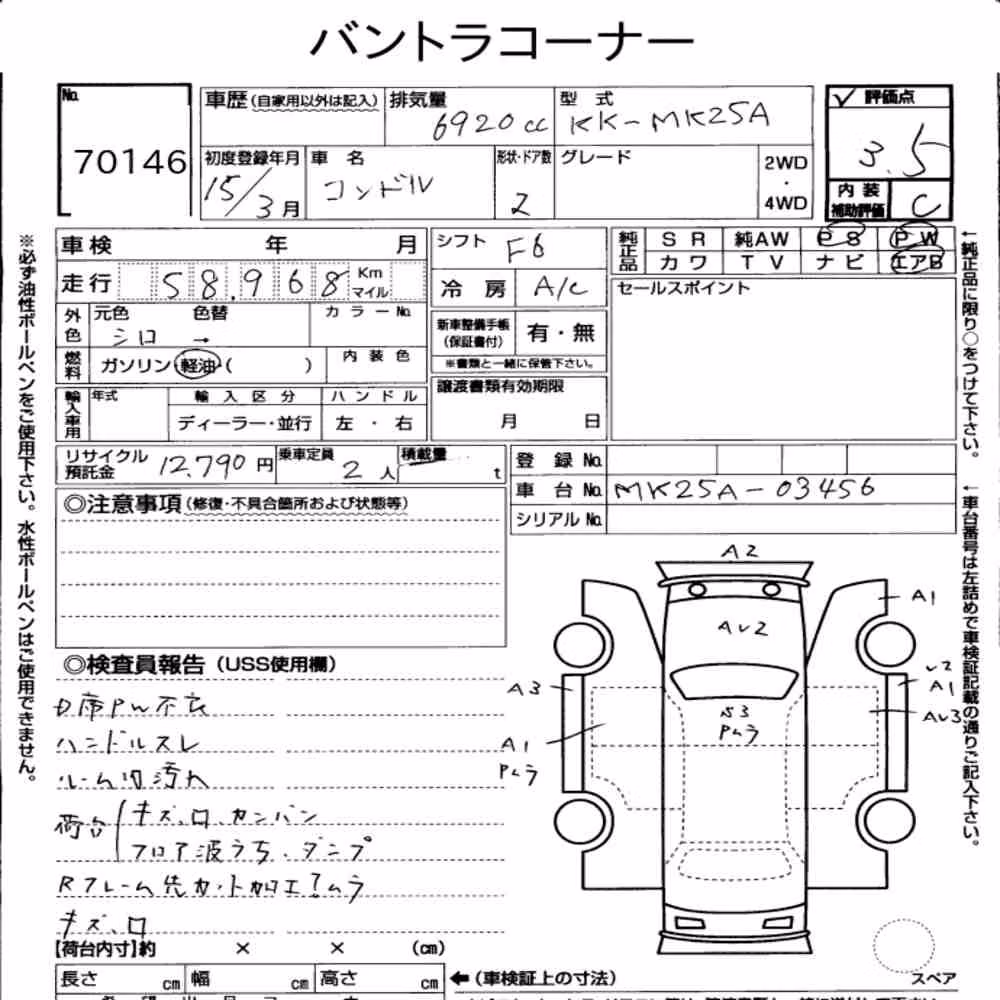 バントラコーナー
No. 70146
車歴(自家用以外は記入)
排気量 6920cc
型式 KK-MK25A
✓ 評価点
3.5
初度登録年月 15/3月
車名 コンドル
形状・ドア数 2
グレード
2WD・4WD
内装補助評価 C
車検 年 月
シフト F6
純正品 SR 純AW PS PW
カワ TV ナビ エアB
走行 58.968 Km マイル
冷房 A/C
セールスポイント
外色 元色 シロ 色替 → カラーNo.
新車整備手帳(保証書付) 有・無
※書類と一緒に保管下さい。
燃料 ガソリン・軽油・( ) 内装色
譲渡書類有効期限
月 日
輸入車用 年式 輸入区分 ハンドル
ディーラー・並行 左・右
リサイクル預託金 12,790円 乗車定員 2人 積載量 t
登録No.
車台No. MK25A-03456
シリアルNo.
◎注意事項(修復・不具合箇所および状態等)
◎検査員報告(USS使用欄)
D席PW不良
ハンドルスレ
ルーム内汚れ
荷台 キズ、凹、カンバン
フロア波うち、ダンプ
Rフレーム先カット加工?ムラ
キズ、凹
【荷台内寸】約 × × (cm)
長さ cm 幅 cm 高さ cm
←(車検証上の寸法)
A2
A1
AU2
A3
A1
Pムラ
S3
Pムラ
U2
A1
AU3
スペア
※必ず油性ボールペンをご使用下さい。水性ボールペンはご使用できません。
←純正品に限り○をつけて下さい。
←車台番号は左詰めで車検証記載の通りご記入下さい。